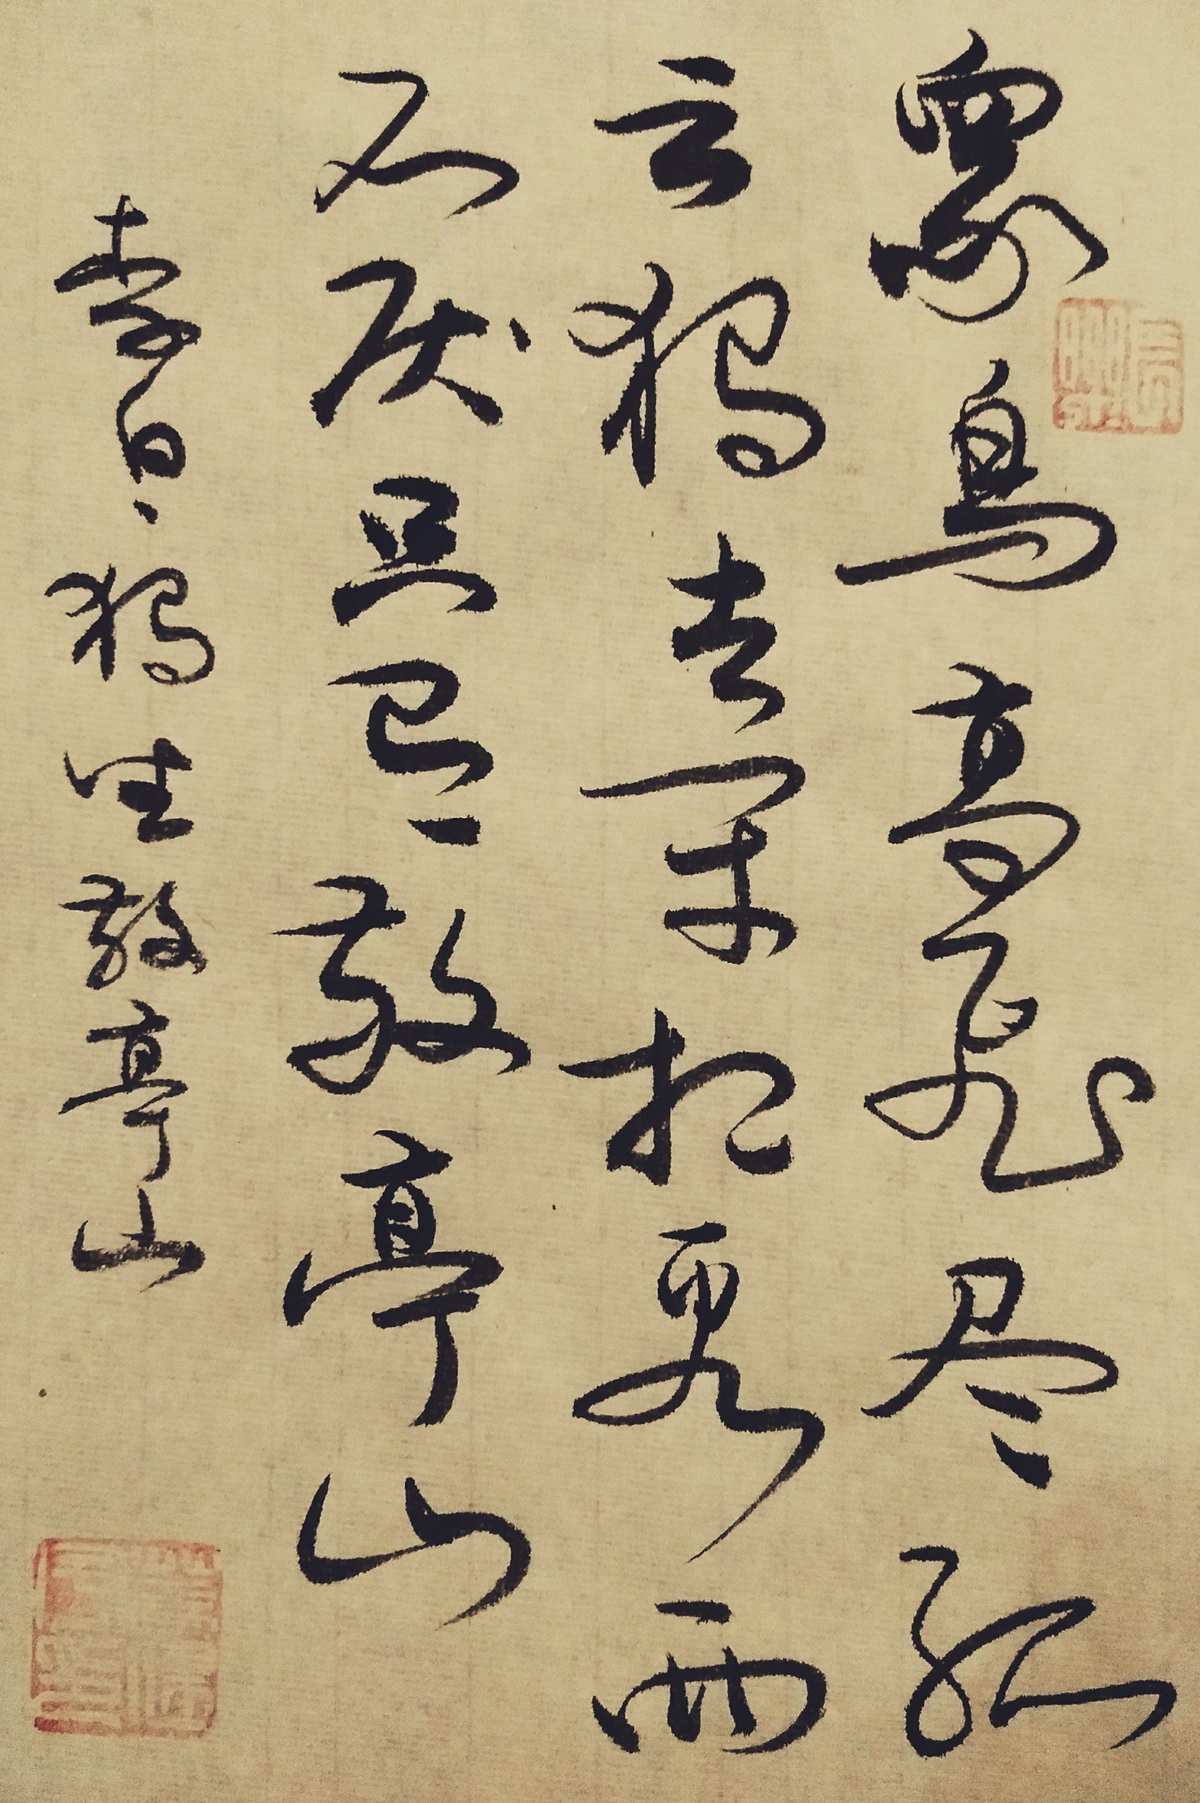 众鸟高飞尽孤
云独去闲相看两
不厌只有敬亭山
李白独坐敬亭山